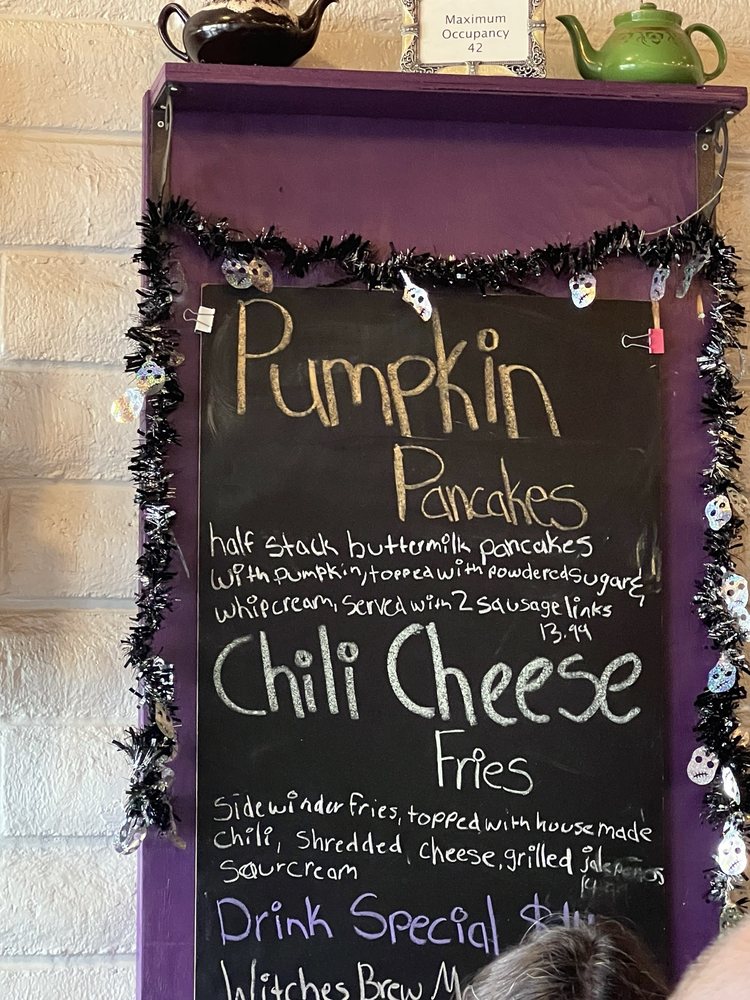 Maximum
Occupancy
42
Pumpkin
Pancakes
half stack buttermilk pancakes
with pumpkin, topped with powdered sugar &
whipcream, served with 2 sausage links
13.99
Chili Cheese
Fries
Sidewinder fries, topped with house made
chili, shredded cheese, grilled jalepeños
sourcream
Drink Special
Witches Brew